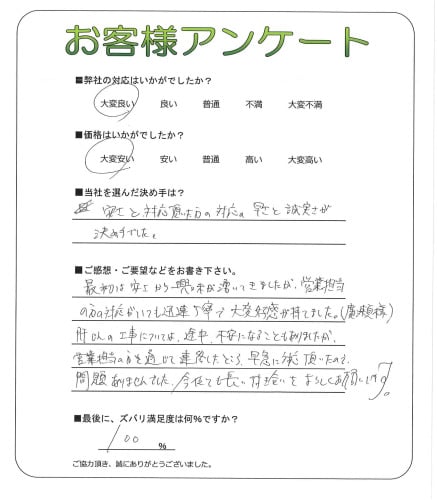 お客様アンケート
■弊社の対応はいかがでしたか？
大変良い 良い 普通 不満 大変不満
■価格はいかがでしたか？
大変安い 安い 普通 高い 大変高い
■当社を選んだ決め手は？
安さと対応頂いた方の対応の早さと誠実さが
決め手でした。
■ご感想・ご要望などをお書き下さい。
最初は安さから興味が湧いてきましたが、営業担当
の方の対応がいつも迅速丁寧で大変好感が持てました。(廣瀬様)
肝心の工事については、途中、不安になることもありましたが、
営業担当の方を通じて連絡したところ、早急に対応頂いたので
問題ありませんでした。今後とも長いお付き合いをよろしくお願いします。
■最後に、ズバリ満足度は何%ですか？
100 %
ご協力頂き、誠にありがとうございました。